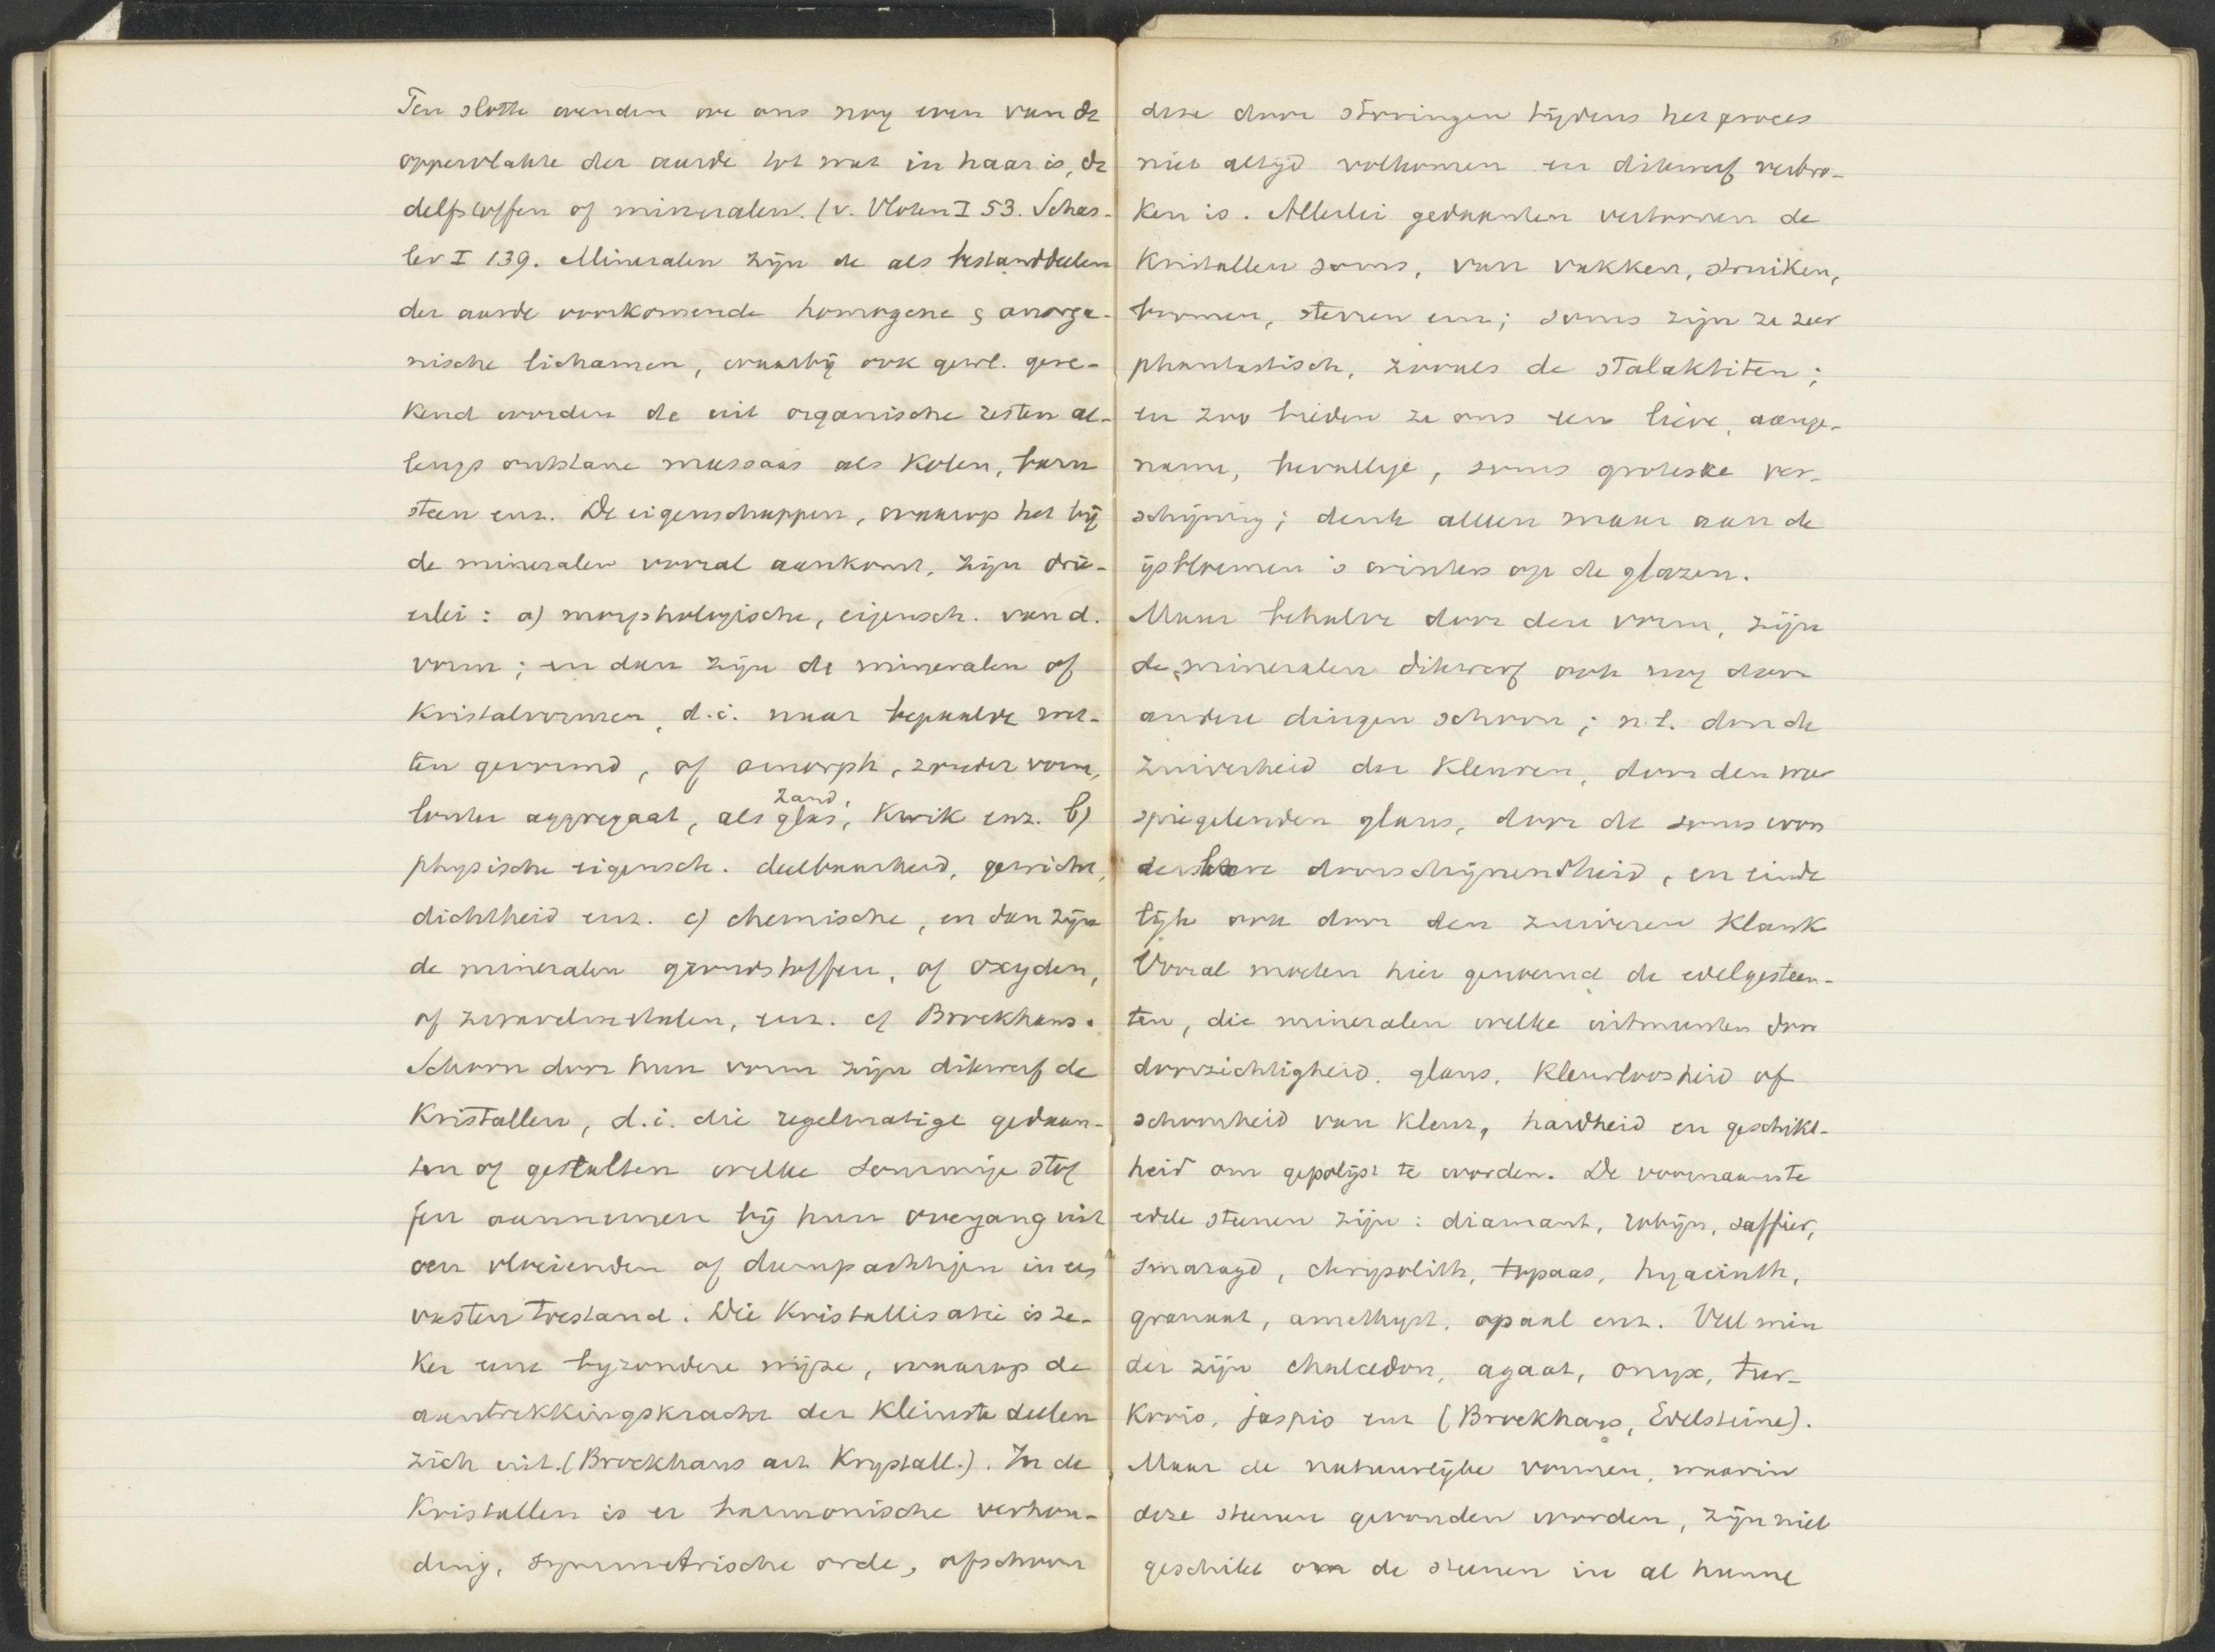 Ten slotte wenden we ons nog even van de
oppervlakte der aarde tot wat in haar is, de
delfstoffen of mineralen. (v. Vloten I 53. Schas-
ler I 139. Mineralen zijn de als bestanddeelen
der aarde voorkomende homogene & anorga-
nische lichamen, waarbij ook gewl. gere-
kend worden de uit organische resten al-
lengs ontstane massaas als kolen, barn
steen enz. De eigenschappen, waarop het bij
de mineralen vooral aankomt, zijn drie-
erlei: a) morphologische, eigensch. van d.
vorm; en dan zijn de mineralen of
kristalvormen, d.i. naar bepaalde wet-
ten gevormd, of amorph, zonder vorm,
louter aggregaat, als zand, glas, kwik enz. b)
physische eigensch. deelbaarheid, gewicht,
dichtheid enz. c) chemische, en dan zijn
de mineralen grondstoffen, of oxyden,
of zwavelmetalen, enz. cf Brockhaus.
Schoon door hun vorm zijn dikwerf de
Kristallen, d.i. die regelmatige gedaan-
ten of gestalten welke sommige stof
fen aannemen bij hun overgang uit
een vloeienden of dampachtigen in een
vasten toestand. Die Kristallisatie is ze-
ker eene byzondere wijze, waarop de
aantrekkingskracht der kleinste deelen
zich uit. (Brockhaus art Krystall.). In de
Kristallen is er harmonische verhou-
ding, symmetrische orde, ofschoon
deze door storingen tijdens het proces
niet altijd volkomen en dikwerf verbro-
ken is. Allerlei gedaanten vertoonen de
Kristallen soms, van vakken, struiken,
boomen, sterren enz; soms zijn ze zeer
phantastisch, zooals de stalaktiten;
en zoo bieden ze ons een lieve, aange-
name, bevallige, soms groteske ver-
schijning; denk alleen maar aan de
ijsbloemen 's winters op de glazen.
Maar behalve door den vorm, zijn
de mineralen dikwerf ook nog door
andere dingen schoon; n.l. door de
zuiverheid der kleuren, door den weer
spiegelenden glans, door de soms won
derbare doorschijnendheid, en einde
lijk ook door den zuiveren klank
Vooral moeten hier genoemd de edelgesteen-
ten, die mineralen welke uitmunten door
doorzichtigheid, glans, kleurloosheid of
schoonheid van kleur, hardheid en geschikt-
heid om gepolijst te worden. De voornaamste
edele steenen zijn: diamant, robijn, saffier,
smaragd, chrysolith, topaas, hyacinth,
granaat, amethyst, opaal enz. Veel min
der zijn chalcedon, agaat, onyx, tur-
koois, jaspis enz (Brockhaus, Edelsteine).
Maar de natuurlijke vormen, waarin
deze steenen gevonden worden, zijn niet
geschikt om de steenen in al hunne